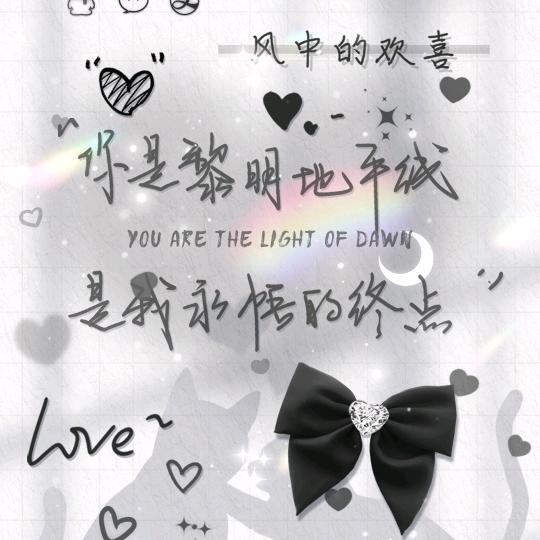 风中的欢喜
“你是黎明地平线
YOU ARE THE LIGHT OF DAWN
是我永悟的终点”
Love~